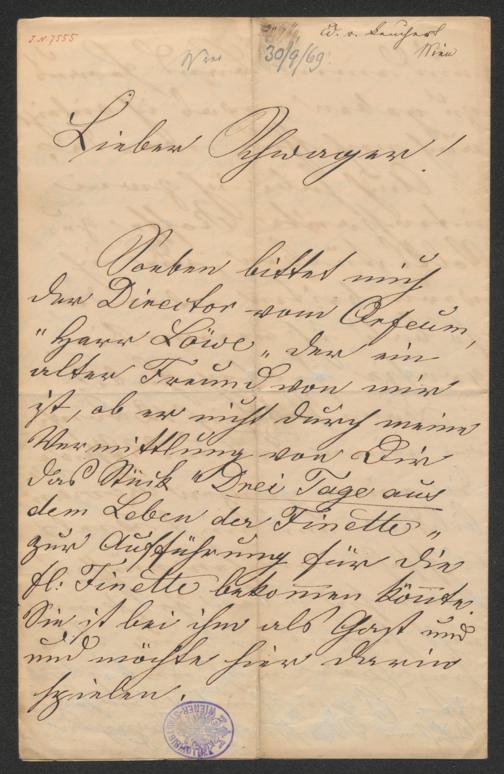 J.N. 7555
Wien
30/9/69
Wien
Lieber Schwager!
Soeben bittet mich
der Director vom Orfeum,
"Herr Löwe" der ein
alter Freund von mir
ist, ob er nicht durch meine
Vermittlung von Dir
das Stück "Drei Tage aus
dem Leben der Finette"
zur Aufführung für die
fl: Finette bekommen könnte.
Sie ist bei ihm als Gast und
und möchte hier darin
spielen.